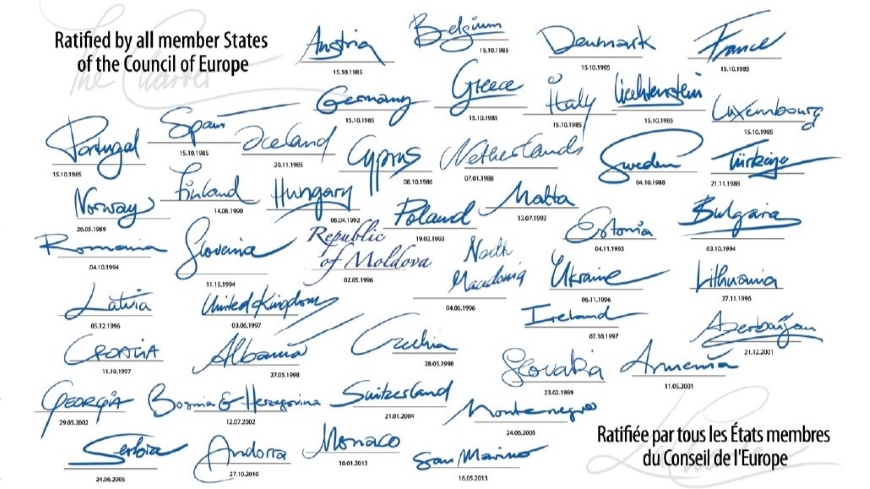 Ratified by all member States
of the Council of Europe
The Charter
Austria
15.10.1985
Belgium
15.10.1985
Denmark
15.10.1985
France
15.10.1985
Germany
15.10.1985
Greece
15.10.1985
Italy
15.10.1985
Liechtenstein
15.10.1985
Luxembourg
15.10.1985
Portugal
15.10.1985
Spain
15.10.1985
Iceland
20.11.1985
Cyprus
08.10.1986
Netherlands
07.01.1988
Sweden
04.10.1988
Türkiye
21.11.1988
Norway
26.05.1989
Finland
14.06.1990
Hungary
06.04.1992
Poland
19.02.1993
Malta
13.07.1993
Estonia
04.11.1993
Bulgaria
03.10.1994
Romania
04.10.1994
Slovenia
11.10.1994
Republic
of Moldova
02.05.1996
North
Macedonia
04.06.1996
Ukraine
06.11.1996
Lithuania
27.11.1996
Latvia
05.12.1996
United Kingdom
03.06.1997
Ireland
07.10.1997
Azerbaijan
21.12.2001
CROATIA
11.10.1997
Albania
27.05.1998
Czechia
28.05.1998
Slovakia
23.02.1999
Armenia
11.05.2001
GEORGIA
29.05.2002
Bosnia & Herzegovina
12.07.2002
Switzerland
21.01.2004
Montenegro
24.06.2005
Serbia
24.06.2005
Andorra
27.10.2010
Monaco
10.01.2013
San Marino
16.05.2013
Ratifiée par tous les États membres
du Conseil de l'Europe